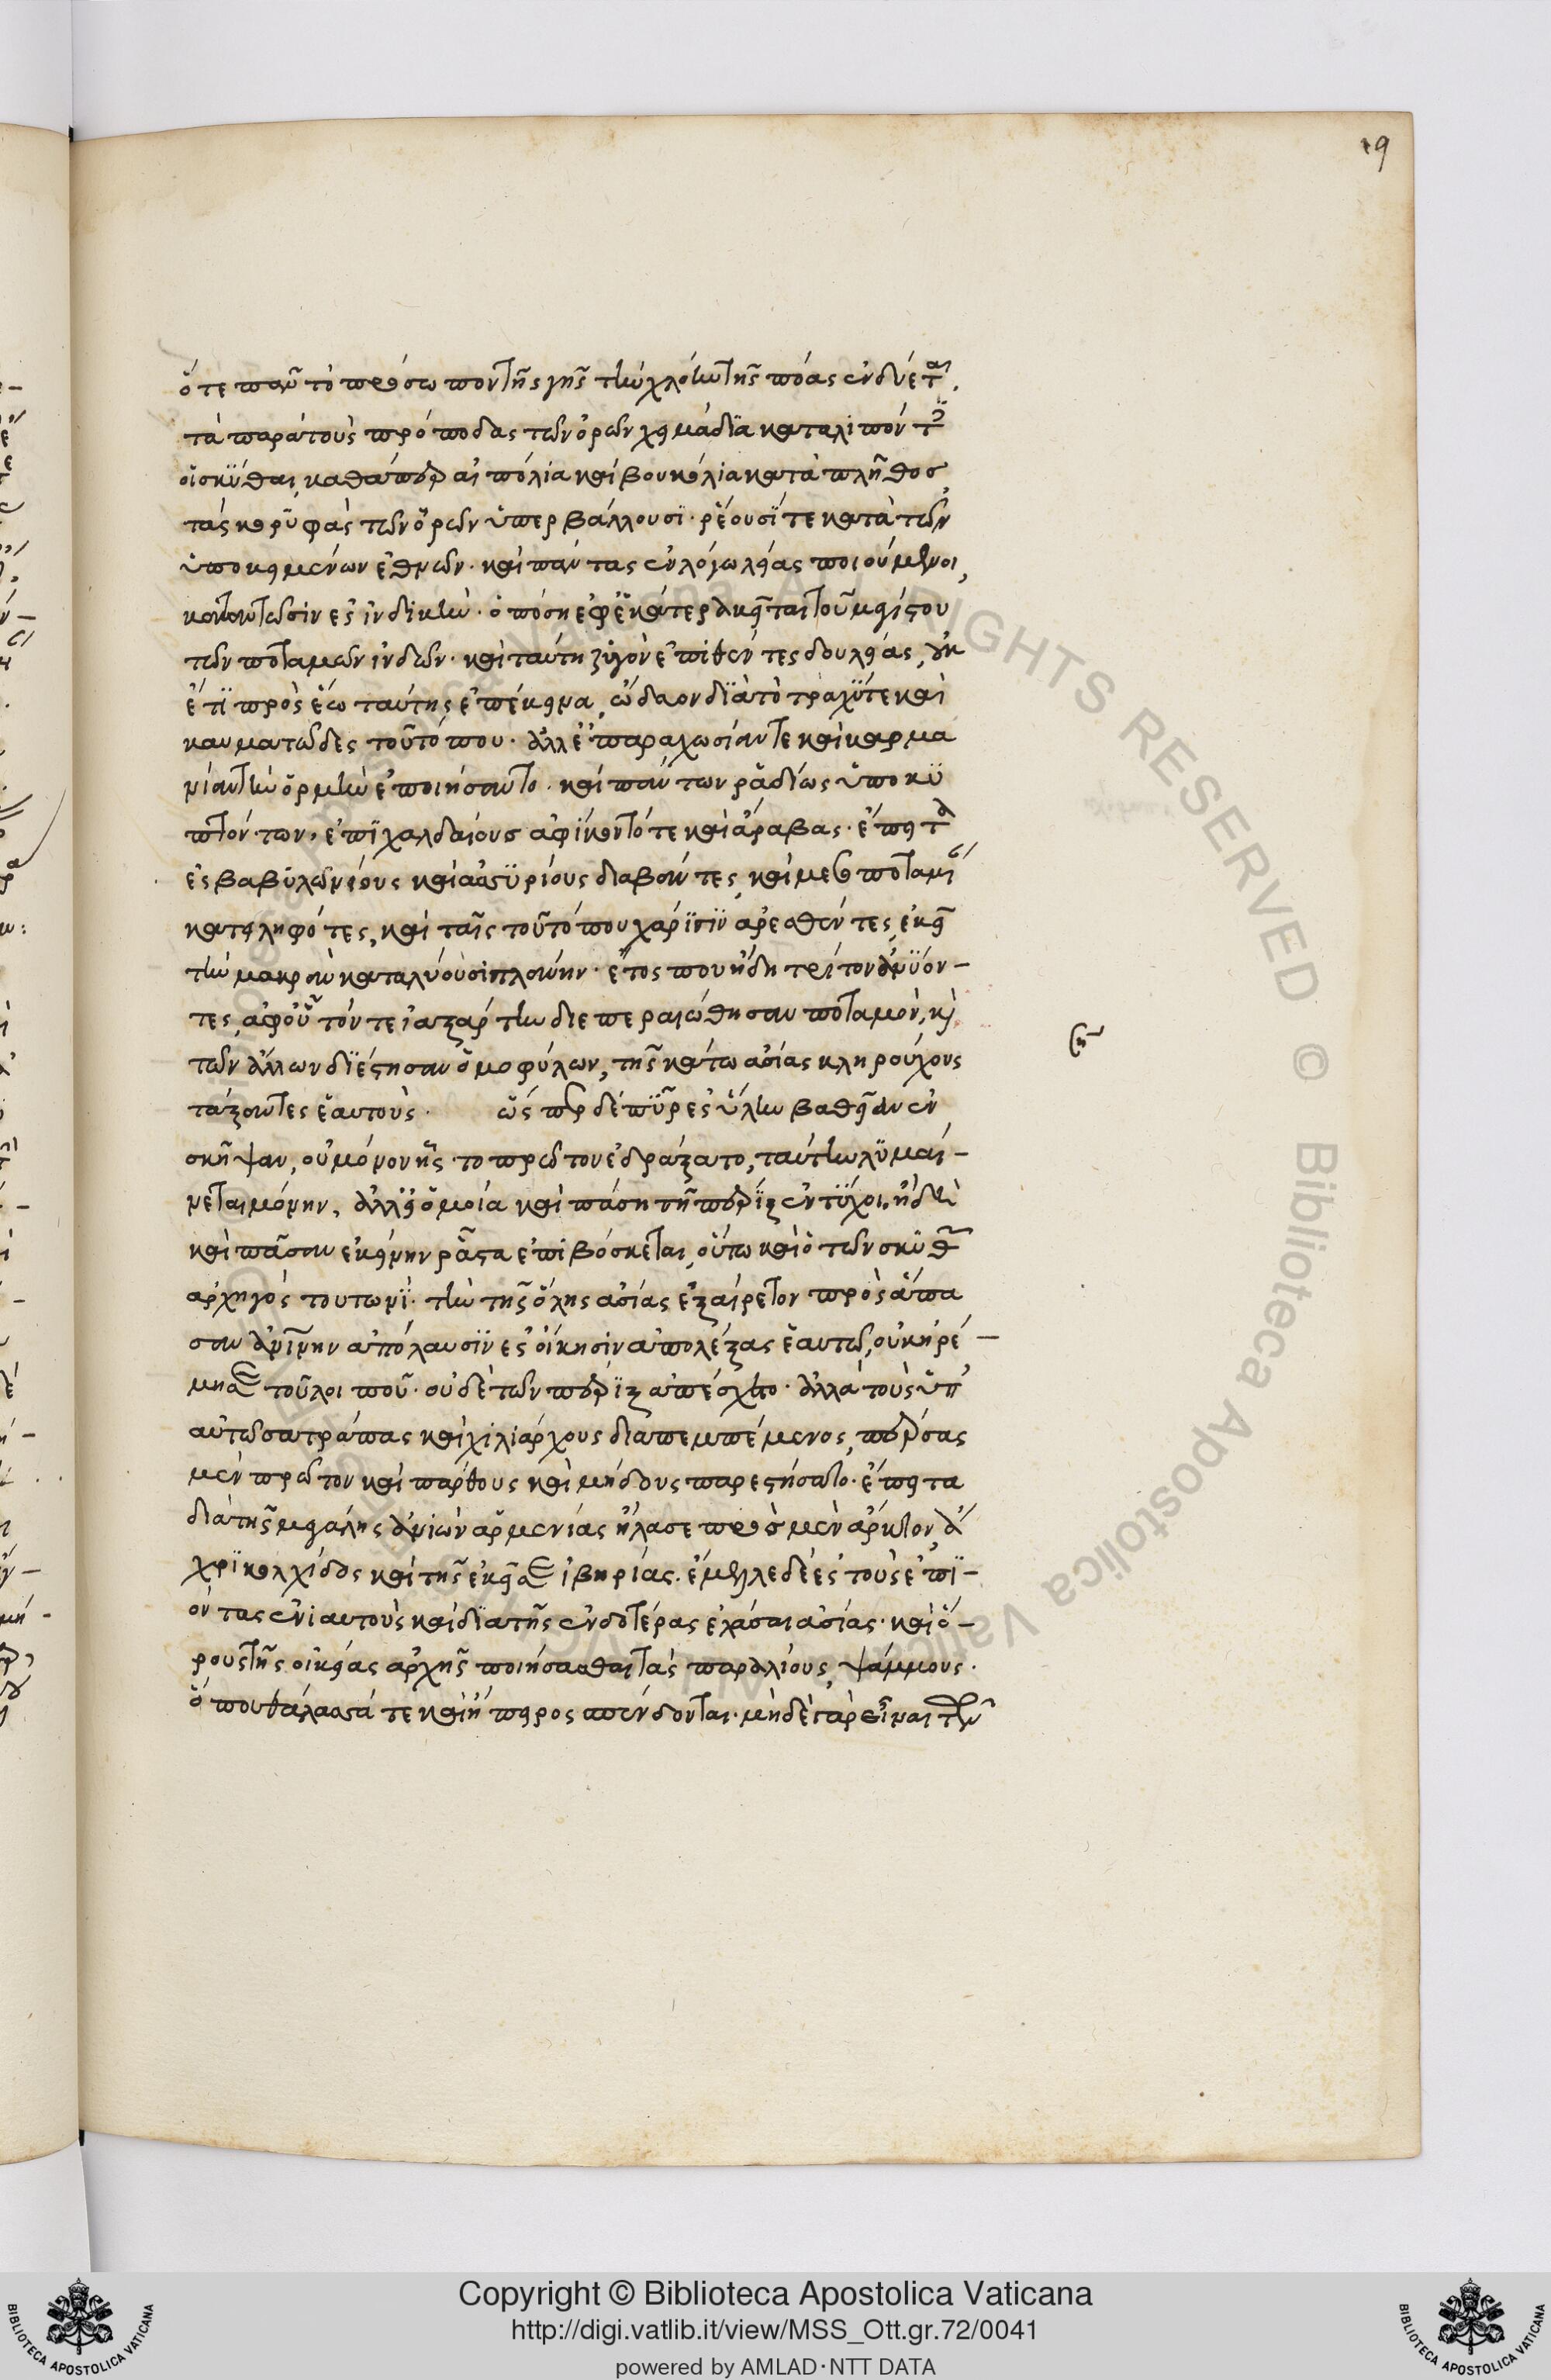 19
ὅτε πᾶν τὸ πρόσωπον τῆς γῆς τὴν χλόην τῆς πόας ἐνδύεται,
τὰ παρὰ τοὺς πρόποδας τῶν ὀρῶν χειμάδια καταλιπόντες
οἱ σκύθαι, καθάπερ αἰπόλια καὶ βουκόλια κατὰ πλῆθος
τὰς κορυφὰς τῶν ὀρῶν ὑπερβάλλουσι· ῥέουσί τε κατὰ τῶν
ὑποκειμένων ἐθνῶν· καὶ πάντας ἐν λόγῳ λείας ποιούμενοι,
καταντῶσιν ἐς ἰνδικὴν· ὁπόση ἐφ' ἑκάτερα κεῖται τοῦ μεγίστου
τῶν ποταμῶν ἰνδῶν· καὶ ταύτῃ ζυγὸν ἐπιθέντες δουλείας, οὐκ
ἔτι πρὸς ἕω ταύτης ἐπέκεινα ὥδευον διὰ τὸ τραχύ τε καὶ
καυματῶδες τοῦ τόπου· ἀλλ' ἐπ' ἀραχωσίαν τε καὶ καρμα
νίαν τὴν ὁρμὴν ἐποιήσαντο· καὶ πάντων ῥᾳδίως ὑποκυ
πτόντων, ἐπὶ χαλδαίους ἀφίκοντό τε καὶ ἄραβας· ἔπειτα
ἐς βαβυλωνίους καὶ ἀσσυρίους διαβάντες, καὶ μέσην ποταμῶν
κατειληφότες, καὶ ταῖς τοῦ τόπου χάρισιν ἀρεσθέντες, ἐκεῖ
τὴν μακρὰν καταλύουσι πλάνην· ἔτος που ἤδη τρίτον ἀνύον-
τες, ἀφ' οὗ τόν τε ἰαξάρτην διεπεραιώθησαν ποταμὸν, καὶ
τῶν ἄλλων διέστησαν ὁμοφύλων, τῆς κάτω ἀσίας κληρούχους
τάξαντες ἑαυτοὺς· ὥσπερ δὲ πῦρ ἐς ὕλην βαθεῖαν ἐν
σκῆψαν, οὐ μόνον ἧς τὸ πρῶτον ἐδράξατο, ταύτην λυμαί-
νεται μόνην, ἀλλ' εἰ ὁμοία καὶ πάση τῇ πέριξ ἐντύχοι, ἤδη
καὶ πᾶσαν ἐκείνην ῥᾷστα ἐπιβόσκεται, οὕτω καὶ ὁ τῶν σκυθῶν
ἀρχηγὸς τουτωνὶ· τὴν τῆς ὅλης ἀσίας ἐξαίρετον πρὸς ἅπα
σαν ἀνειμένην ἀπόλαυσιν ἐς οἴκησιν ἀπολέξας ἑαυτῶ, οὐκ ἠρέ-
μησε τοῦ λοιποῦ· οὐδὲ τῶν πέριξ ἀπέσχετο· ἀλλὰ τοὺς ὑπ'
αὐτῶ σατράπας καὶ χιλιάρχους διαπεμπόμενος, πέρσας
μὲν πρῶτον καὶ πάρθους καὶ μήδους παρεστήσατο· ἔπειτα
διὰ τῆς μεγάλης ἀνιὼν ἀρμενίας ἤλασε πρὸς μὲν ἄρκτον, ἄ
χρι κολχίδος καὶ τῆς ἐκεῖσε ἰβηρίας· ἔμελλε δὲ ἐς τοὺς ἐπι-
όντας ἐνιαυτοὺς καὶ διὰ τῆς ἐνδοτέρας ἐλάσαι ἀσίας· καὶ ὅ-
ρους τῆς οἰκείας ἀρχῆς ποιήσασθαι τὰς παραλίους ψάμμους·
ὅπου θάλασσά τε καὶ ἤπειρος σπένδονται· μηδὲ γὰρ εἶναι τῶν
Copyright © Biblioteca Apostolica Vaticana
http://digi.vatlib.it/view/MSS_Ott.gr.72/0041
powered by AMLAD·NTT DATA